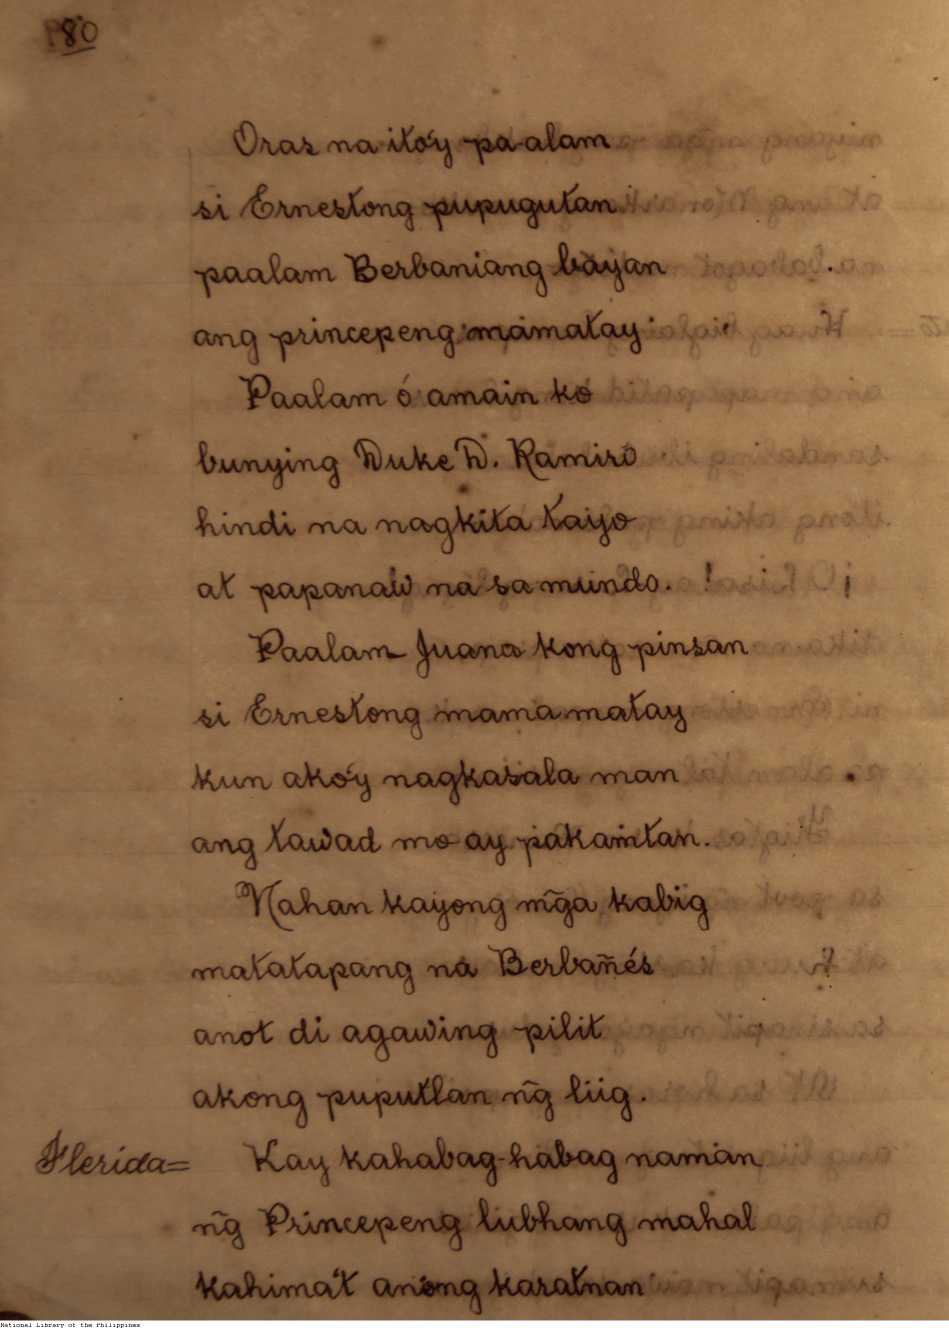 80
Oras na ito'y pa-alam
si Ernestong pupugutan
paalam Berbaniang bayan
ang princepeng mamatay.
Paalam ó amain ko
bunying Duke D. Ramiro
hindi na nagkita tayo
at papanaw na sa mundo. !
Paalam Juana kong pinsan
si Ernestong mamamatay
kun ako'y nagkasala man
ang tawad mo ay pakamtan.
Nahan kayong mg̃a kabig
matatapang na Berbañés
anot di agawing pilit
akong puputlan ñg liig.
Flerida= Kay kahabag-habag naman
ñg Princepeng lubhang mahal
kahima't anong karatnan
National Library of the Philippines